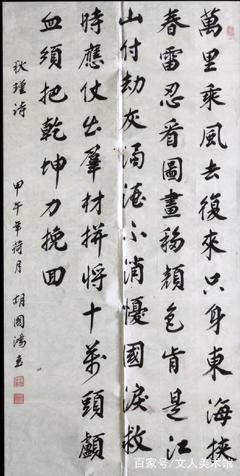 萬里乘風去復來只身東海挾
春雷忍看圖畫移顏色肯是江
山付劫灰濁酒不消憂國淚救
時應仗出羣材拼將十萬頭顱
血須把乾坤力挽回
秋瑾詩
甲午年荷月 胡國
百家号/文人美术馆